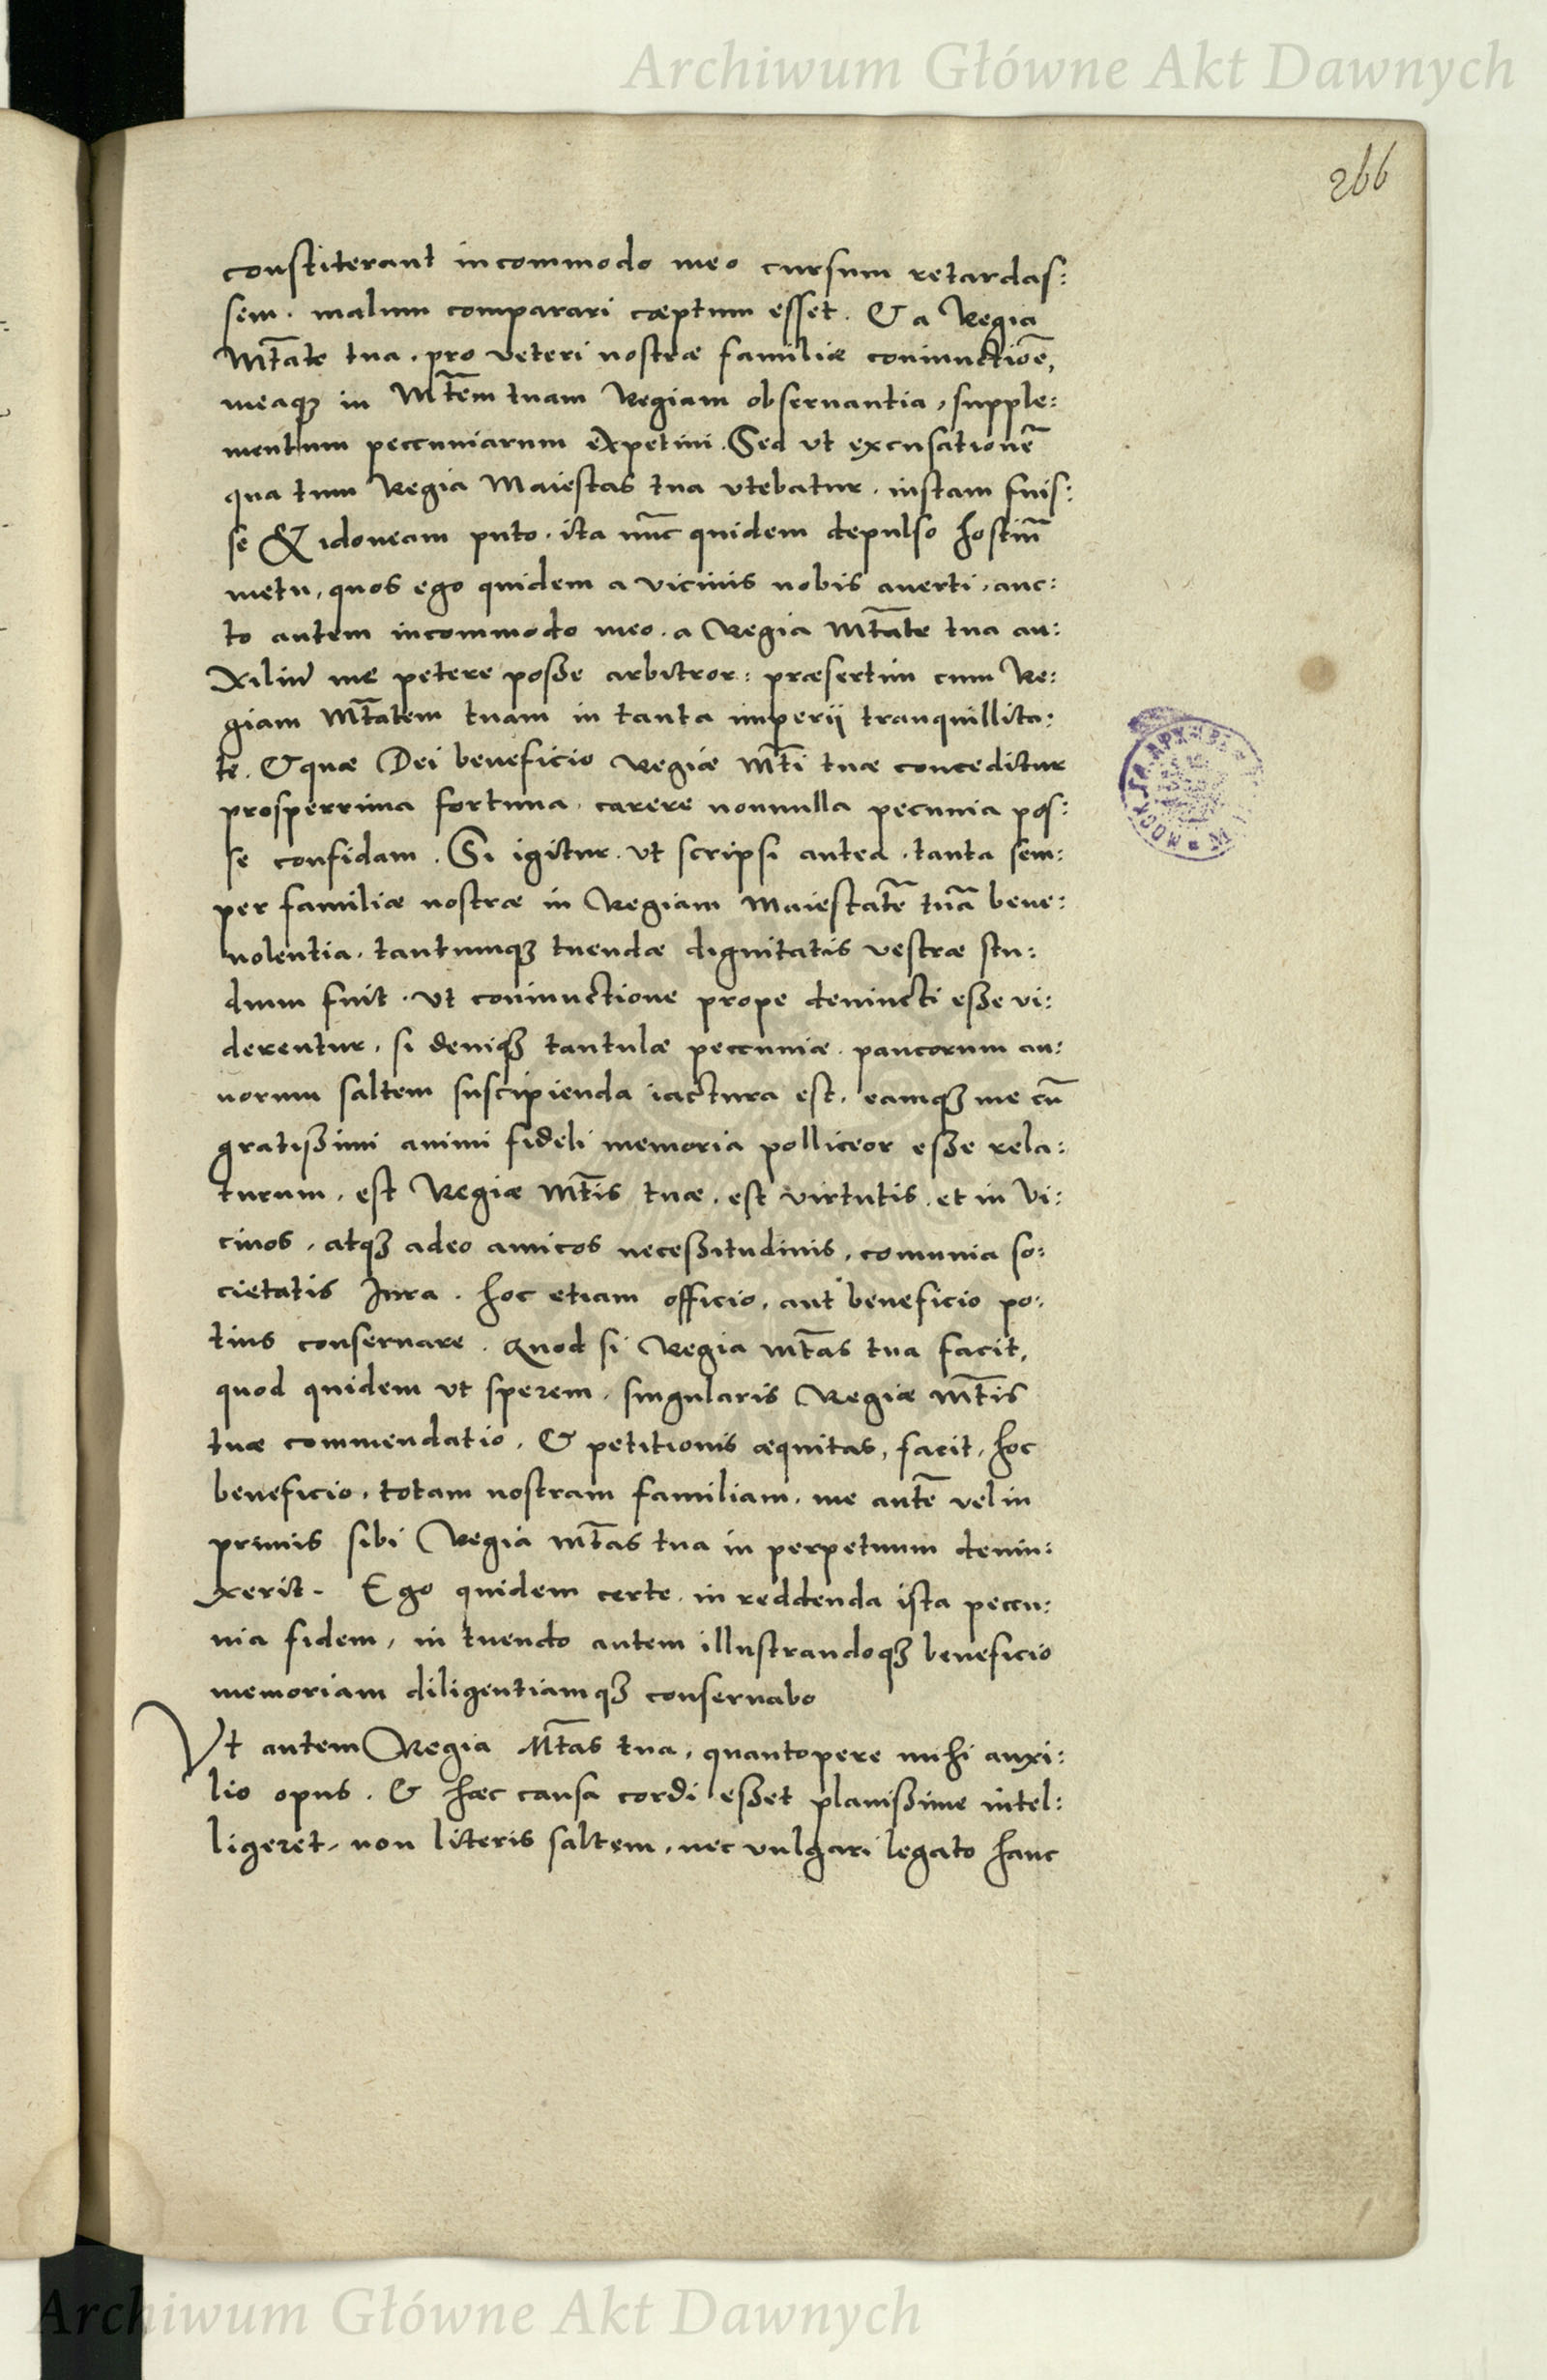 Archiwum Główne Akt Dawnych
266
constiterant incommodo meo cursum retardas:
sem. malum comparari cœptum esset. & a Regia
Mt̃ate tua. pro veteri nostræ familiæ coniunctiõe,
meaqꝫ in Mt̃em tuam Regiam obseruantia, supple:
mentum peccuniarum expetiui. Sed ut excusationẽ
qua tum Regia Maiestas tua utebatur. iustam fuis:
se & idoneam puto. ita nũc quidem depulso hostiũ
metu, quos ego quidem a vicinis nobis auerti, auc:
to autem incommodo meo. a Regia Mt̃ate tua au:
xiliũ me petere posse arbitror: præsertim cum Re:
giam Mt̃atem tuam in tanta imperij tranquillita:
te. & quæ Dei beneficio Regiæ Mt̃i tuæ conceditur
prosperrima fortuna. carere nonnulla pecunia pos:
se confidam. Si igitur. ut scripsi antea. tanta sem:
per familiæ nostræ in Regiam Maiestatẽ tuã bene:
uolentia. tantumqꝫ tuendæ dignitatis vestræ stu:
dium fuit. ut coniunctione prope deuincti esse vi:
derentur. si deniqꝫ tantulæ peccuniæ. paucorum an:
norum saltem suscipienda iactura est. eamqꝫ me cũ
gratissimi animi fideli memoria polliceor esse rela:
turum. est Regiæ Mt̃is tuæ. est virtutis. et in vi:
cinos. atqꝫ adeo amicos necessitudinis. comunia so:
cietatis Iura. hoc etiam officio. aut beneficio po:
tius conseruare. Quod si Regia Mt̃as tua facit,
quod quidem ut sperem. singularis Regiæ Mt̃is
tuæ commendatio. & petitionis æquitas, facit, hoc
beneficio. totam nostram familiam. me autẽ vel in
primis sibi Regia Mt̃as tua in perpetuum deuin:
xerit. Ego quidem certe. in reddenda ista peccu:
nia fidem, in tuendo autem illustrandoqꝫ beneficio
memoriam diligentiamqꝫ conseruabo
Ut autem Regia Mt̃as tua, quantopere mihi auxi:
lio opus. & hæc causa cordi esset planissime intel:
ligeret, non literis saltem, nec vulgari legato hanc
Archiwum Główne Akt Dawnych